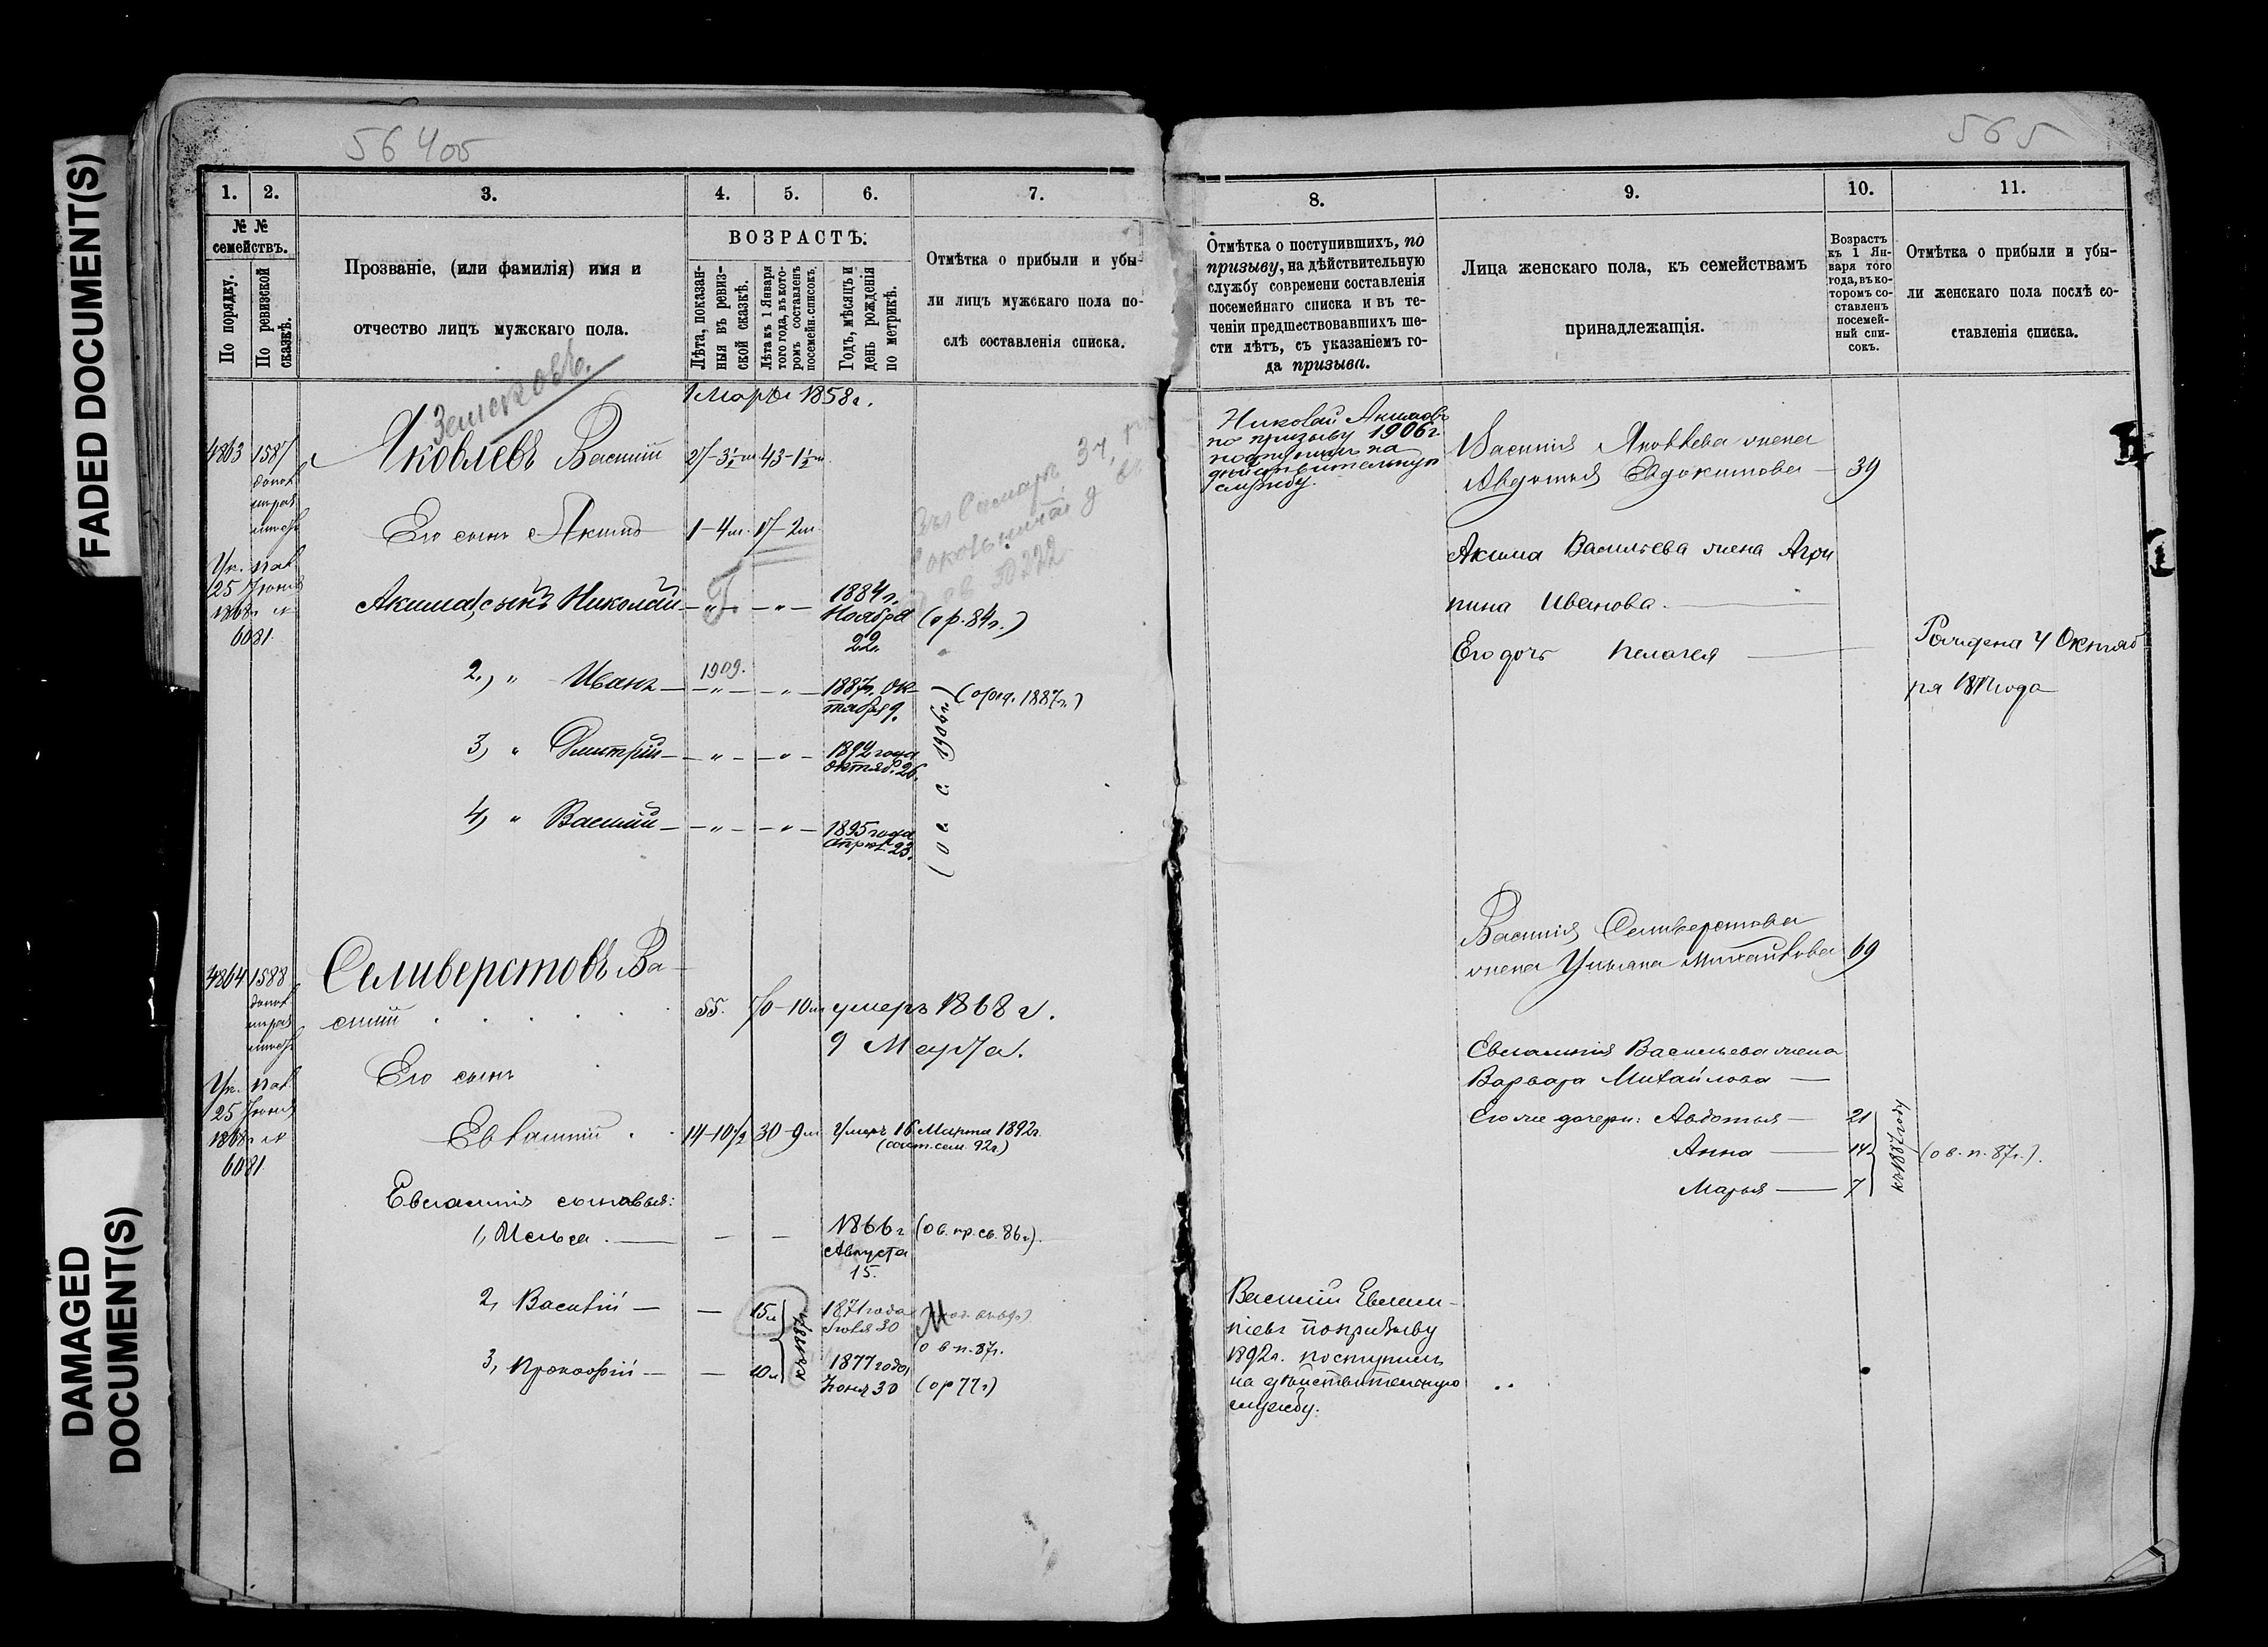 FADED DOCUMENT(S)
DAMAGED
DOCUMENT(S)
564об
1.
2.
3.
4.
5.
6.
7.
№ №
семействъ.
По порядку.
По ревизской
сказкѣ.
Прозваніе, (или фамилія) имя и
отчество лицъ мужскаго пола.
ВОЗРАСТЪ:
Лѣта, показан-
ныя въ ревиз-
ской сказкѣ.
Лѣта къ 1 Января
того года, въ кото-
ромъ составленъ
посемейн. списокъ.
Годъ, мѣсяцъ и
день рожденія
по метрикѣ.
Отмѣтка о прибыли и убы-
ли лицъ мужскаго пола по-
слѣ составленія списка.
Земсковъ.
1 Марта 1858 г.
4863 1587 Яковлевъ Василій 27-3½ м 43-1½ м
Его сынъ Акимъ 1-4 м. 17-2 м.
Ук. пал
25 Іюня
1868 г №
6081.
Акима, сынъ Николай — „ — — „ — 1884 г.
Ноября (о р. 84 г.)
22.
1909.
2, „ Иванъ — „ — — „ — 1887 г. Ок- (о род. 1887 г.)
тября 9.
3, „ Дмитрій — „ — — „ — 1892 года
Октяб. 26.
4, „ Василій — „ — — „ — 1895 года
Апрѣл. 23.
(о с. с. 1906 г.)
4864 1588 Селиверстовъ Ва-
силій 55. 70-10 м умеръ 1868 г.
9 Марта.
Его сынъ
Евлампій 14-10½ 30-9 м Умеръ 16 Марта 1892 г.
(сост. сем. 92 г)
Ук. пал
25 Іюня
1868 г №
6081
Евлампія сыновья:
1, Илья — — — 1866 г (о в. пр. св. 86 г).
Августа
15.
2, Василій — — 15 л 1871 года
Іюля 30
о в п. 87 г.
3, Прокофій — — 10 л 1877 года,
Іюня 30 (о р 77 г)
къ 1887 г.
565
8.
9.
10.
11.
Отмѣтка о поступившихъ, по
призыву, на дѣйствительную
службу современи составленія
посемейнаго списка и въ те-
ченіи предшествовавшихъ ше-
сти лѣтъ, съ указаніемъ го-
да призыва.
Лица женскаго пола, къ семействамъ
принадлежащія.
Возрастъ
къ 1 Ян-
варя того
года, въ ко-
торомъ со-
ставленъ
посемей-
ный спи-
сокъ.
Отмѣтка о прибыли и убы-
ли женскаго пола послѣ со-
ставленія списка.
Николай Акимовъ
по призыву 1906 г.
поступилъ на
дѣйствительную
службу.
Василія Яковлева жена
Авдотья Евдокимова — 39
Акима Васильева жена Агри
пина Иванова. —
Его дочь Пелагея — Рождена 4 Октяб
ря года
Василія Селиверстова
жена Ульяна Михайлова 69
Евлампія Васильева жена
Варвара Михайлова —
Его же дочери: Авдотья — 21
Анна — 14 (о в. п. 87 г.).
Марья — 7
къ 1887 году
Василій Евлам-
піевъ по призыву
1892 г. поступилъ
на дѣйствительную
службу.